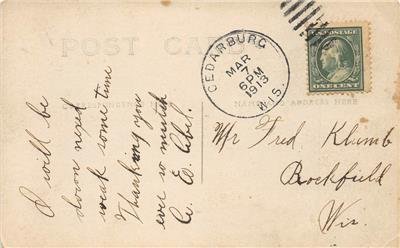 POST CARD
CORRESPONDENCE
NAME AND ADDRESS HERE
CEDARBURG
MAR
7
6 PM
1913
WIS.
U.S. POSTAGE
ONE CENT
I will be
down next
weak some time
Thanking you
ever so mutch
Mr Fred Klumb
Rockfield
Wis.